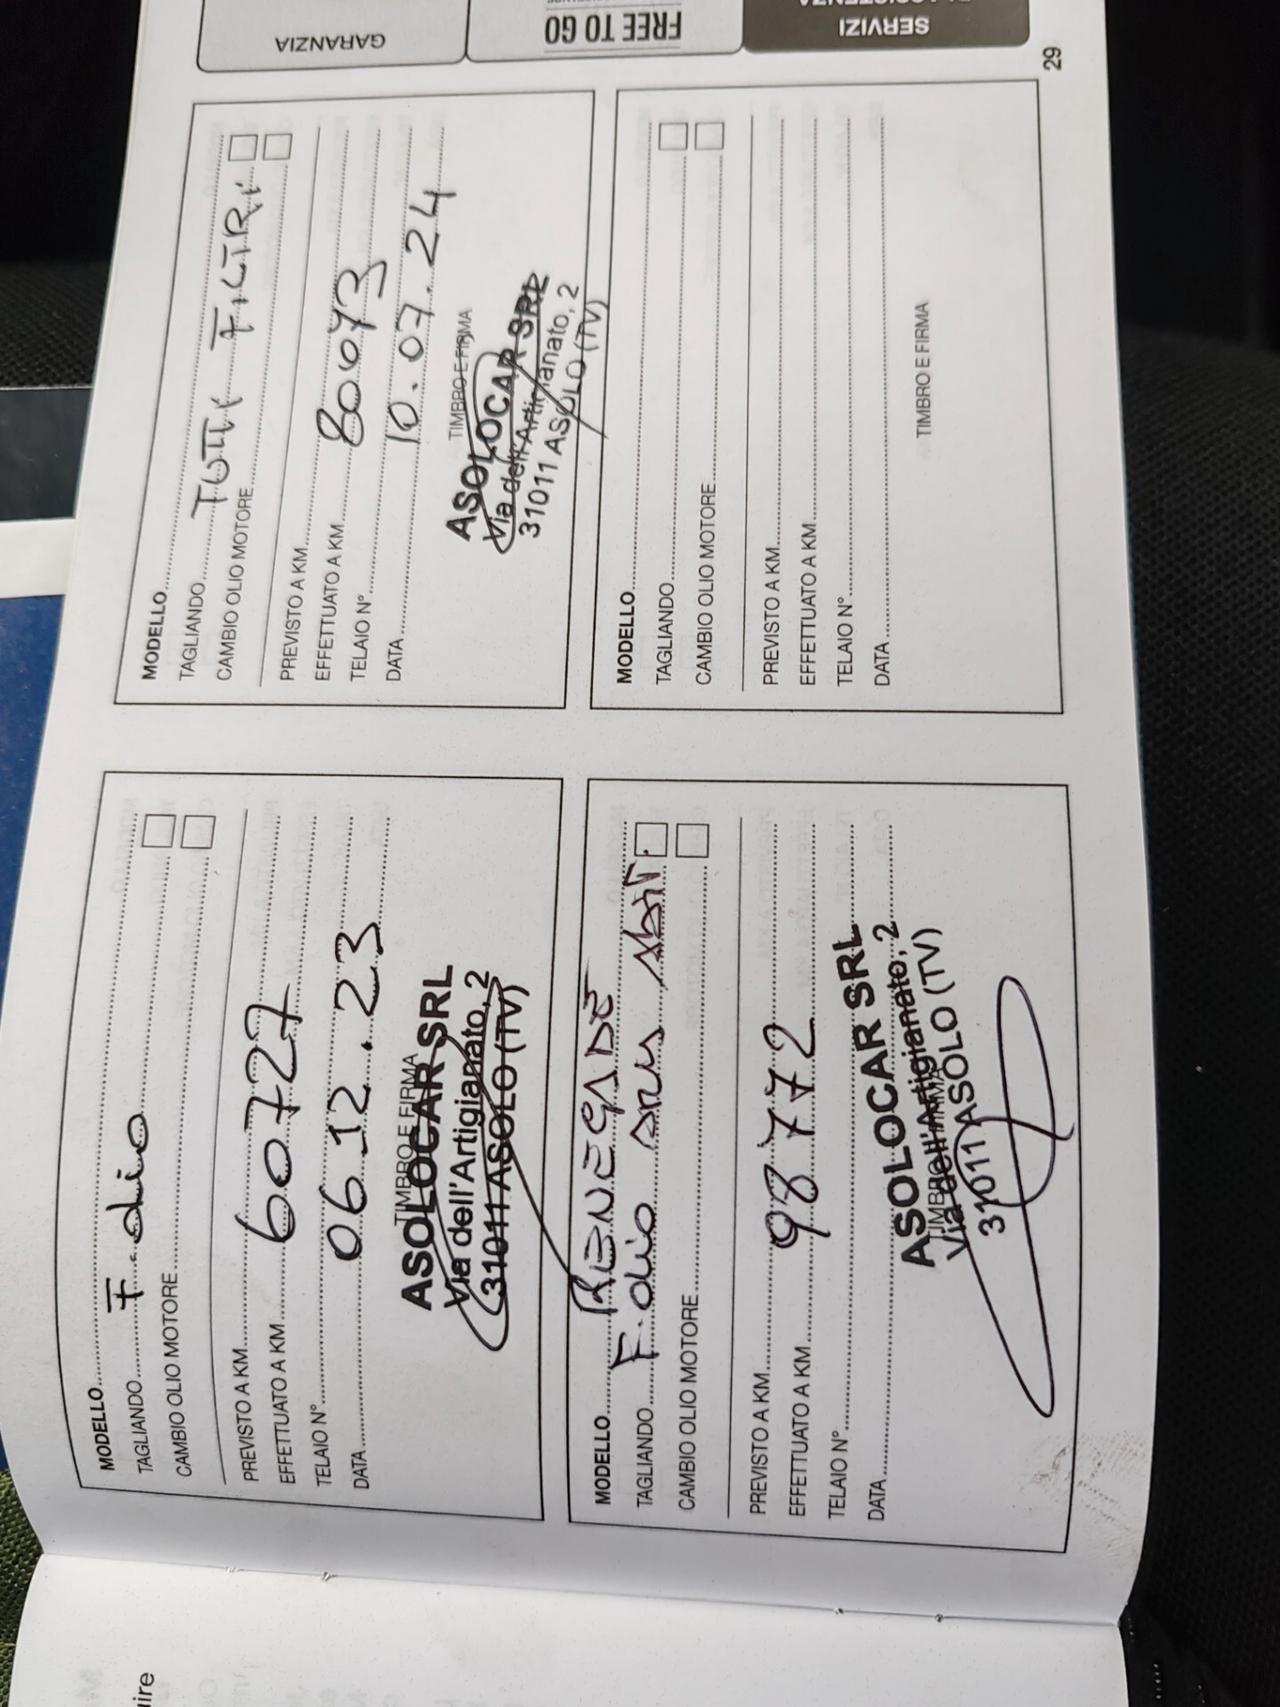 MODELLO
TAGLIANDO F. olio
CAMBIO OLIO MOTORE
PREVISTO A KM
EFFETTUATO A KM 60727
TELAIO N°
DATA 06.12.23
TIMBRO E FIRMA
ASOLOCAR SRL
Via dell'Artigianato, 2
31011 ASOLO (TV)
MODELLO
TAGLIANDO TUTTI FILTRI
CAMBIO OLIO MOTORE
PREVISTO A KM
EFFETTUATO A KM 80073
TELAIO N°
DATA 10.07.24
TIMBRO E FIRMA
ASOLOCAR SRL
Via dell'Artigianato, 2
31011 ASOLO (TV)
MODELLO RENEGADE
TAGLIANDO F. olio
CAMBIO OLIO MOTORE
PREVISTO A KM
EFFETTUATO A KM 98772
TELAIO N°
DATA
TIMBRO E FIRMA
ASOLOCAR SRL
Via dell'Artigianato, 2
31011 ASOLO (TV)
MODELLO
TAGLIANDO
CAMBIO OLIO MOTORE
PREVISTO A KM
EFFETTUATO A KM
TELAIO N°
DATA
TIMBRO E FIRMA
29
GARANZIA
FREE TO GO
SERVIZI
ire